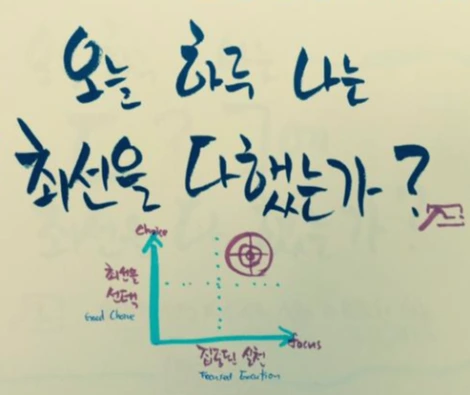 오늘 하루 나는
최선을 다했는가?
Choice
최선을
선택
Good Choice
focus
집중된 실천
Focused Execution